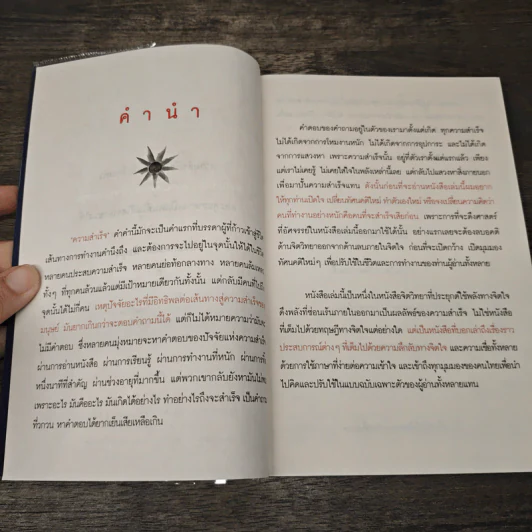 คำนำ
"ความสำเร็จ" คำคำนี้มักจะเป็นคำแรกที่บรรดาผู้ที่ก้าวเข้าสู่ชีวิต
เส้นทางการทำงานคำนึงถึง และต้องการจะไปอยู่ในจุดนั้นให้ได้ในชีวิต
หลายคนประสบความสำเร็จ หลายคนย่อท้อกลางทาง หลายคนล้มเหลว
ทั้งๆ ที่ทุกคนล้วนแล้วแต่มีเป้าหมายเดียวกันทั้งนั้น แต่กลับมีคนที่ไปถึง
จุดนั้นได้ไม่กี่คน เหตุปัจจัยอะไรที่มีอิทธิพลต่อเส้นทางสู่ความสำเร็จของ
มนุษย์ มันยากเกินกว่าจะตอบคำถามนี้ได้ แต่ก็ไม่ได้หมายความว่ามันจะ
ไม่มีคำตอบ ซึ่งหลายคนมุ่งหมายจะหาคำตอบของปัจจัยแห่งความสำเร็จ
ผ่านการอ่านหนังสือ ผ่านการเรียนรู้ ผ่านการทำงานที่หนัก ผ่านการ
หนึ่งนาทีที่สำคัญ ผ่านช่วงอายุที่มากขึ้น แต่พวกเขากลับยังหามันไม่พบ
เพราะอะไร มันคืออะไร มันเกิดได้อย่างไร ทำอย่างไรถึงจะสำเร็จ เป็นคำถาม
ที่วกวน หาคำตอบได้ยากเย็นเสียเหลือเกิน
คำตอบของคำถามอยู่ในตัวของเรามาตั้งแต่เกิด ทุกความสำเร็จ
ไม่ได้เกิดจากการโหมงานหนัก ไม่ได้เกิดจากการอุปการะ และไม่ได้เกิด
จากการแสวงหา เพราะความสำเร็จนั้น อยู่ที่ตัวเราตั้งแต่แรกแล้ว เพียง
แต่เราไม่เคยรู้ ไม่เคยใส่ใจในพลังเหล่านี้เลย แต่กลับไปแสวงหาสิ่งภายนอก
เพื่อมาปั้นความสำเร็จแทน ดังนั้นก่อนที่จะอ่านหนังสือเล่มนี้ผมอยาก
ให้ทุกท่านเปิดใจ เปลี่ยนทัศนคติใหม่ ทำตัวเองใหม่ หรือจงเปลี่ยนความคิดว่า
คนที่ทำงานอย่างหนักคือคนที่จะสำเร็จเสียก่อน เพราะการที่จะดึงศาสตร์
ที่อัศจรรย์ในหนังสือเล่มนี้ออกมาใช้ได้นั้น อย่างแรกเลยจะต้องลบอคติ
ด้านจิตวิทยาออกจากด้านลบภายในจิตใจ ก่อนที่จะเปิดกว้าง เปิดมุมมอง
ทัศนคติใหม่ๆ เพื่อปรับใช้ในชีวิตและการทำงานของท่านผู้อ่านทั้งหลาย
หนังสือเล่มนี้เป็นหนึ่งในหนังสือจิตวิทยาที่ประยุกต์ใช้พลังทางจิตใจ
ดึงพลังที่ซ่อนเร้นภายในออกมาเป็นผลลัพธ์ของความสำเร็จ ไม่ใช่หนังสือ
ที่เต็มไปด้วยทฤษฎีทางจิตใจแต่อย่างใด แต่เป็นหนังสือที่บอกเล่าถึงเรื่องราว
ประสบการณ์ต่างๆ ที่เต็มไปด้วยความลี้ลับทางจิตใจ และความเชื่อทั้งหลาย
ด้วยการใช้ภาษาที่ง่ายต่อความเข้าใจ และเข้าถึงทุกมุมมองของคนไทยเพื่อนำ
ไปคิดและปรับใช้ในแบบฉบับเฉพาะตัวของผู้อ่านทั้งหลายแทน